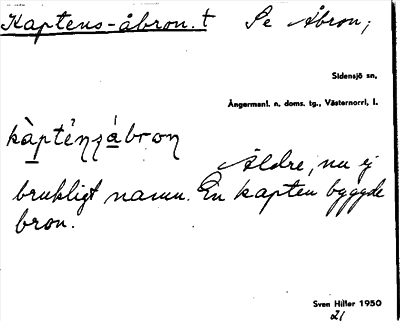 Kaptens-åbron. t Se Åbron;
Sidensjö sn,
Ångermanl. n. doms. tg., Västernorrl, l.
kàpténzábron
Äldre, nu ej
brukligt namn. En kapten byggde
bron.
Sven Hitler 1950
21